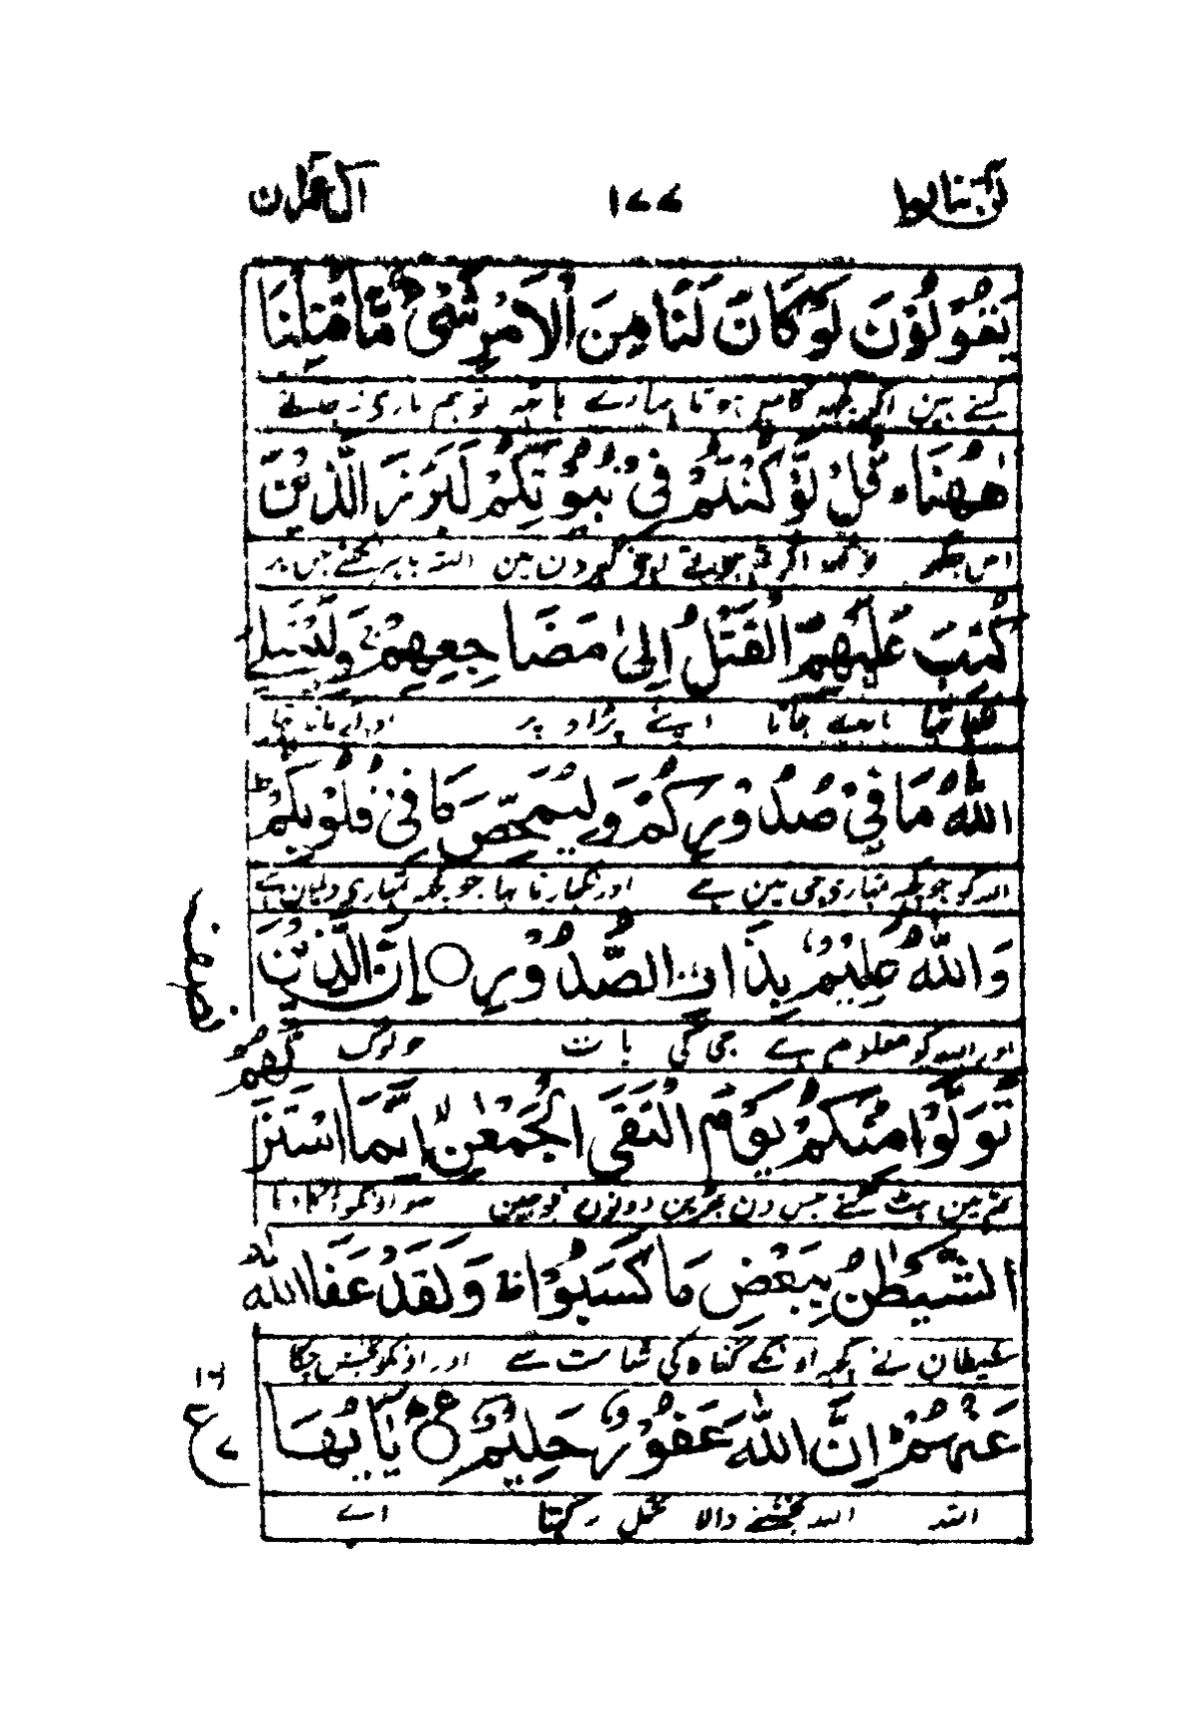 لن تنالوا ١٧٧ اٰل عمران
يَقُوْلُوْنَ لَوْ كَانَ لَنَا مِنَ الْاَمْرِ شَیْءٌ مَّا قُتِلْنَا
کہتے ہین اگر کچھ کام ہوتا ہمارے ہاتھ تو ہم ماری نہ جاتے
هٰهُنَا ؕ قُلْ لَّوْ كُنْتُمْ فِیْ بُیُوْتِكُمْ لَبَرَزَ الَّذِیْنَ
اس جگہ تو کہہ اگر تم ہوتے اپنے گھرون مین البتہ باہر نکلتے جن پر
كُتِبَ عَلَیْهِمُ الْقَتْلُ اِلٰی مَضَاجِعِهِمْ ۚ وَلِیَبْتَلِیَ
لکھا تھا مارے جانا اپنے پڑاو پر اور آزمانا تھا
اللّٰهُ مَا فِیْ صُدُوْرِكُمْ وَلِیُمَحِّصَ مَا فِیْ قُلُوْبِكُمْ ؕ
اللہ کو جو کچھ تمہاری جی مین ہے اور نکھارنا تھا جو کچھ تمہاری دلمین ہے
وَاللّٰهُ عَلِیْمٌۢ بِذَاتِ الصُّدُوْرِ ○ اِنَّ الَّذِیْنَ
اور اللہ کو معلوم ہے جی کی بات جو لوگ
تَوَلَّوْا مِنْكُمْ یَوْمَ الْتَقَی الْجَمْعٰنِ ۙ اِنَّمَا اسْتَزَلَّهُمُ
تم مین ہٹ گئے جس دن بھڑین دونون فوجین سو اونکو ڈگا دیا
الشَّیْطٰنُ بِبَعْضِ مَا كَسَبُوْا ۚ وَلَقَدْ عَفَا اللّٰهُ
شیطان نے کچھ اونکے گناہ کی شامت سے اور اونکو بخش چکا
عَنْهُمْ ؕ اِنَّ اللّٰهَ غَفُوْرٌ حَلِیْمٌ ○ یٰۤاَیُّهَا
اللہ اللہ بخشنے والا تحمل رکھتا اے
النصف
١٦
ع
٧